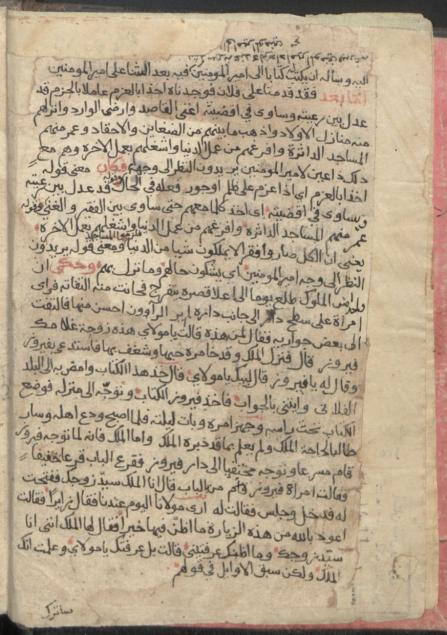 اليه وساله ان يكتب كتابا الى امير المومنين فيه بعد الثنا على امير المومنين
اما بعد فقد قدمنا على فلان فوجدناه اخذا بالعزم عاملا بالحزم قد
عدل بين رعيته وساوى في اقضيته اغنى القاصد وارضى الوارد وانزلهم
منه منازل الاولاد واذهب ما بينهم من الضغاين والاحقاد وعمر منهم
المساجد الداثرة وافرغهم من عمل الدنيا واشغلهم بعمل الاخرة وهم مع
ذلك داعين لامير المومنين يريدون النظر الى وجهه فكان معنى قوله
اخذا بالعزم اي اذا عزم على ظلم او جور فعله في الحال قد عدل بين رعيته
وساوى في اقضيته اي اخذ كلما معهم حتى ساوى بين الفقير والغني وقوله
عمر منهم المساجد الداثرة وافرغهم من عمل الدنيا واشغلهم بعمل الاخرة
يعني ان الكل صاروا فقرا لا يملكون شيا من الدنيا ومعنى قوله يريدون
النظر الى وجه امير المومنين اي يشكون حالهم وما نزل بهم وحكي ان
بعض الملوك طلع يوما الى اعلا قصره يتفرج فحانت منه التفاتة فراى
امراة على سطح دار الى جانب داره لم ير الراوون احسن منها فالتفت
الى بعض جواريه فقال لمن هذه فقالت يا مولاي هذه زوجة غلامك
فيروز قال فنزل الملك وقد خامره حبها وشغف بها فاستدعى بفيروز
وقال له يا فيروز قال لبيك يا مولاي قال خذ هذا الكتاب وامض به الى البلد
الفلاني وايتني بالجواب فاخذ فيروز الكتاب وتوجه الى منزله فوضع
الكتاب تحت راسه وجهز امره وبات ليلته فلما اصبح ودع اهله وسار
طالبا لحاجة الملك ولم يعلم بما قد دبره الملك واما الملك فانه لما توجه فيروز
قام مسرعا وتوجه مختفيا الى دار فيروز فقرع الباب قرعا خفيفا
فقالت امراة فيروز من بالباب قال انا الملك سيد زوجك ففتحت
له فدخل وجلس فقالت له ارى مولانا اليوم عندنا فقال زايرا فقالت
اعوذ بالله من هذه الزيارة وما اظن فيها خيرا فقال لها الملك انني انا
سيد زوجك وما اظنك عرفتيني قالت بل عرفتك يا مولاي وعلمت انك
الملك ولكن سبق الاوايل في قولهم
ساترك